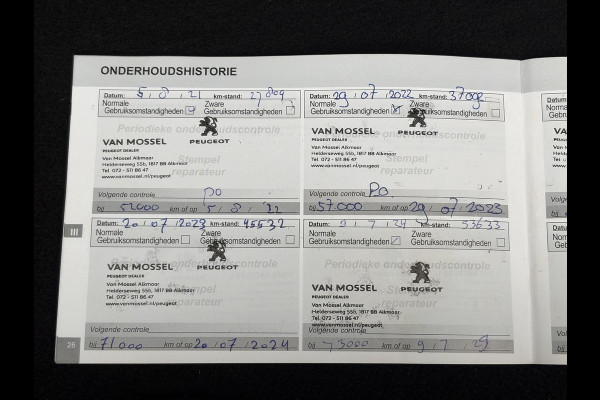 ONDERHOUDSHISTORIE
Datum: 5 / 8 / 21 km-stand: 27809
Normale Zware
Gebruiksomstandigheden Gebruiksomstandigheden
Periodieke onderhoudscontrole
VAN MOSSEL
PEUGEOT DEALER
PEUGEOT
Van Mossel Alkmaar
Helderseweg 55b, 1817 BB Alkmaar
Tel. 072 - 511 86 47
www.vanmossel.nl/peugeot
Stempel
reparateur
Volgende controle PO
bij 52000 km of op 5 / 8 / 22
Datum: 29 / 07 / 2022 km-stand:
Normale Zware
Gebruiksomstandigheden Gebruiksomstandigheden
Periodieke onderhoudscontrole
VAN MOSSEL
PEUGEOT DEALER
PEUGEOT
Van Mossel Alkmaar
Helderseweg 55b, 1817 BB Alkmaar
Tel. 072 - 511 86 47
www.vanmossel.nl/peugeot
Stempel
reparateur
Volgende controle PO
bij 57.000 km of op 29 / 07 / 2023
III
Datum: 20 / 07 / 2023 km-stand: 45532
Normale Zware
Gebruiksomstandigheden Gebruiksomstandigheden
Periodieke onderhoudscontrole
VAN MOSSEL
PEUGEOT DEALER
PEUGEOT
Van Mossel Alkmaar
Helderseweg 55b, 1817 BB Alkmaar
Tel. 072 - 511 86 47
www.vanmossel.nl/peugeot
Stempel
reparateur
Volgende controle
bij 71000 km of op 20 / 07 / 2024
Datum: 9 / 7 / 24 km-stand: 53633
Normale Zware
Gebruiksomstandigheden Gebruiksomstandigheden
Periodieke onderhoudscontrole
VAN MOSSEL
PEUGEOT DEALER
PEUGEOT
Van Mossel Alkmaar
Helderseweg 55b, 1817 BB Alkmaar
Tel. 072 - 511 86 47
www.vanmossel.nl/peugeot
Stempel
reparateur
Volgende controle
bij 73000 km of op 9 / 7 / 25
26